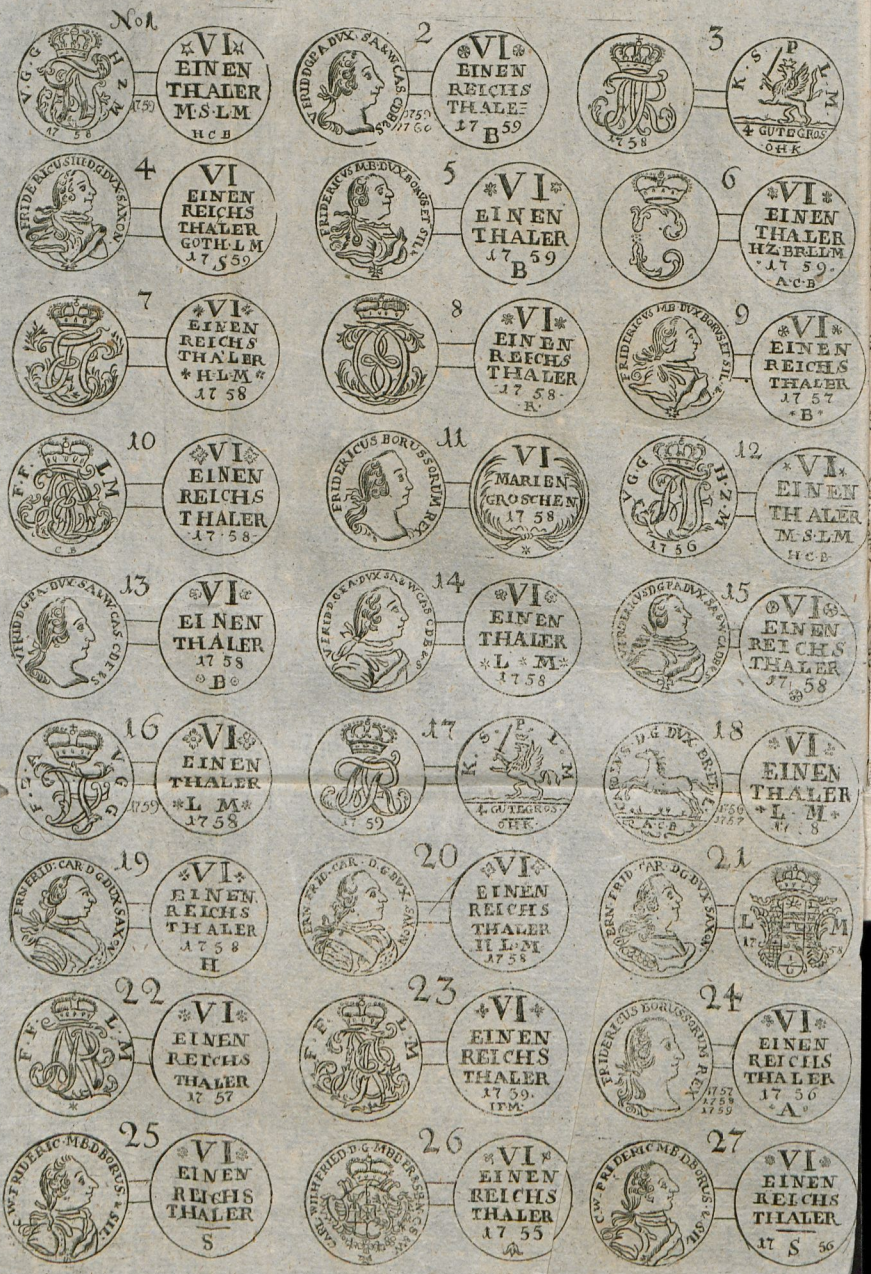 No 1
V. G. G
H Z M
17 58
1759
VI
EINEN
THALER
M·S·L·M
H C B
2
1759
1760
VI
EINEN
REICHS
17 59
B
3
1758
K. S. P. L. M.
4 GUTE GROS
OHK
4
FRIDERICUS III·D·G·DUX·SAXON
VI
EINEN
REICHS
THALER
GOTH·L M
17 S 59
5
FRIDERICVS M·B·DUX BORUS ET SIL.
VI
EINEN
THALER
17 59
B
6
VI
EINEN
THALER
HZ·BR·LL·M
17 59·
A·C·B
7
VI
EINEN
REICHS
THALER
H·L·M
1758
8
VI
EINEN
REICHS
THALER
1758·
·R·
9
FRIDERICVS MB DVX BORUS ET SIL
VI
EINEN
REICHS
THALER
1757
B
10
F. F. L M
C B
VI
EINEN
REICHS
THALER
·17·58·
11
FRIDERICUS BORUSSORUM REX
VI
MARIEN
GROSCHEN
1758
12
V G G H·Z·M
1756
VI
EINEN
THALER
M·S·L·M
H·C·B·
13
VI
EINEN
THALER
1758
B
14
VI
EINEN
THALER
L M
1758
15
VI
EINEN
REICHS
THALER
17 58
16
F. Z. W V G G
1759
VI
EINEN
THALER
L M
1758
17
17 59
K. S. P. L. M
4 GUTE GROS
OHK
18
A·C·B
1756
1757
VI
EINEN
THALER
L·M
19
ERN·FRID: CAR D G DUX SAXON
VI
EINEN
REICHS
THALER
1758
H
20
ERN·FRID·CAR·D·G·DUX·SAXON
VI
EINEN
REICHS
THALER
H L·M
1758
21
ERN·FRID CAR·DG·DVX SAXON
L M
17 58
22
F. F. L·M
VI
EINEN
REICHS
THALER
17 57
23
F. F. L·M
VI
EINEN
REICHS
THALER
24
FRIDERICUS BORUSSORUM REX
1757
1758
1759
VI
EINEN
REICHS
THALER
1756
·A·
25
C·W·FRIDERIC·MB·D·BORUS·SIL·
VI
EINEN
REICHS
THALER
S
26
VI
EINEN
REICHS
THALER
17 55
27
C·W·FRIDERIC MB·D·BORUS·SIL·
VI
EINEN
REICHS
THALER
17 S 56